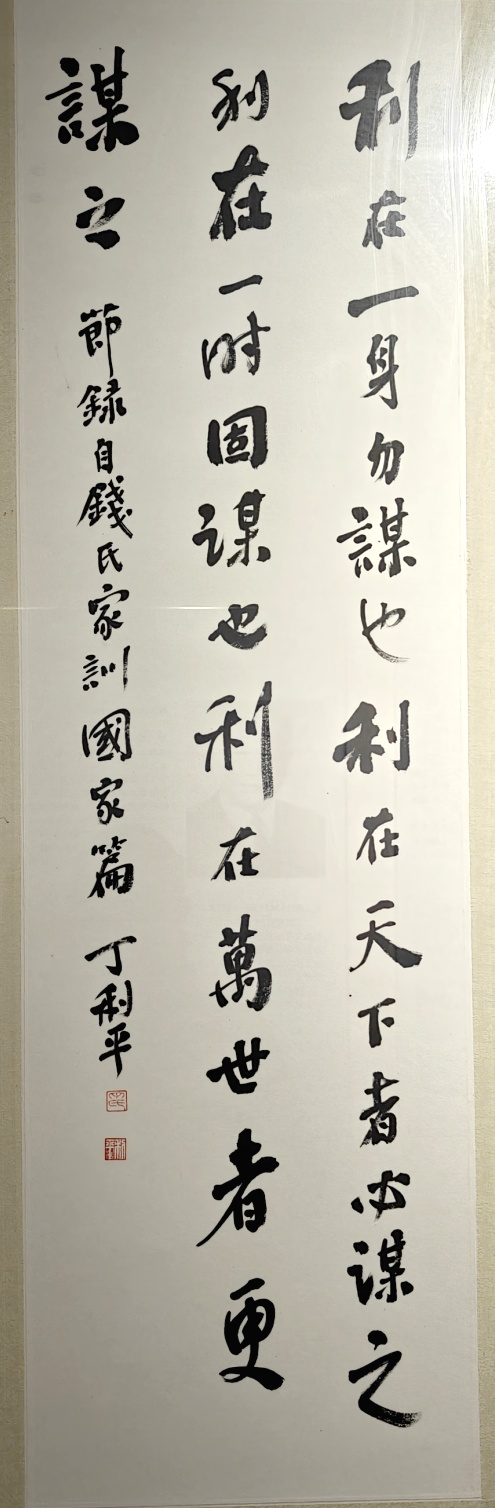 利在一身勿謀也利在天下者必谋之
利在一时固谋也利在萬世者更
謀之 節録自錢氏家訓國家篇 丁利平